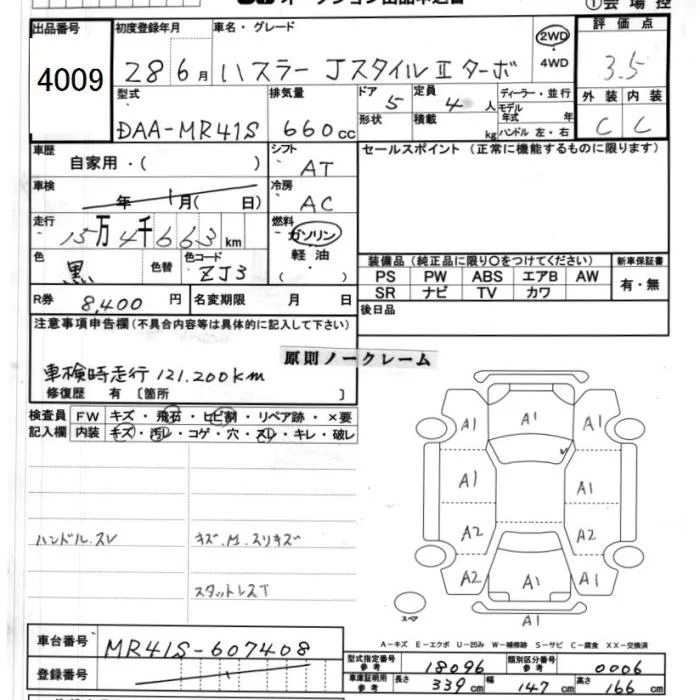 ①会場控
出品番号 初度登録年月 車名・グレード 評価点
4009 28 6月 ハスラー JスタイルⅡターボ 2WD 4WD 3.5
型式 排気量 ドア 5 定員 4人 ディーラー・並行 外装 内装
DAA-MR41S 660cc 形状 積載 kg モデル年式 年 ハンドル 左・右 C C
車歴 自家用・( ) シフト AT セールスポイント (正常に機能するものに限ります)
車検 年 月( 日) 冷房 AC
走行 15万4千663km 燃料 ガソリン
色 黒 色替 色コード ZJ3 軽油 ( )
装備品 (純正品に限り○をつけてください) 新車保証書
PS PW ABS エアB AW 有・無
SR ナビ TV カワ
R券 8,400円 名変期限 月 日 後日品
注意事項申告欄 (不具合内容等は具体的に記入して下さい)
原則ノークレーム
車検時走行 121.200km
修復歴 有 [箇所 ]
検査員 FW キズ・飛石・ヒビ割・リペア跡・×要
記入欄 内装 キズ・汚レ・コゲ・穴・スレ・キレ・破レ
A1 A1 A1
A1 A1
ハンドル.スレ キズ.M.スリキズ A2 A2
スタットレスT A2 A1 A1
スペア A1
A-キズ E-エクボ U-凹み W-補修跡 S-サビ C-腐食 XX-交換済
車台番号 MR41S-607408
型式指定番号 参考 18096 類別区分番号 参考 0006
登録番号 車庫証明用 参考 長さ 339cm 幅 147cm 高さ 166cm